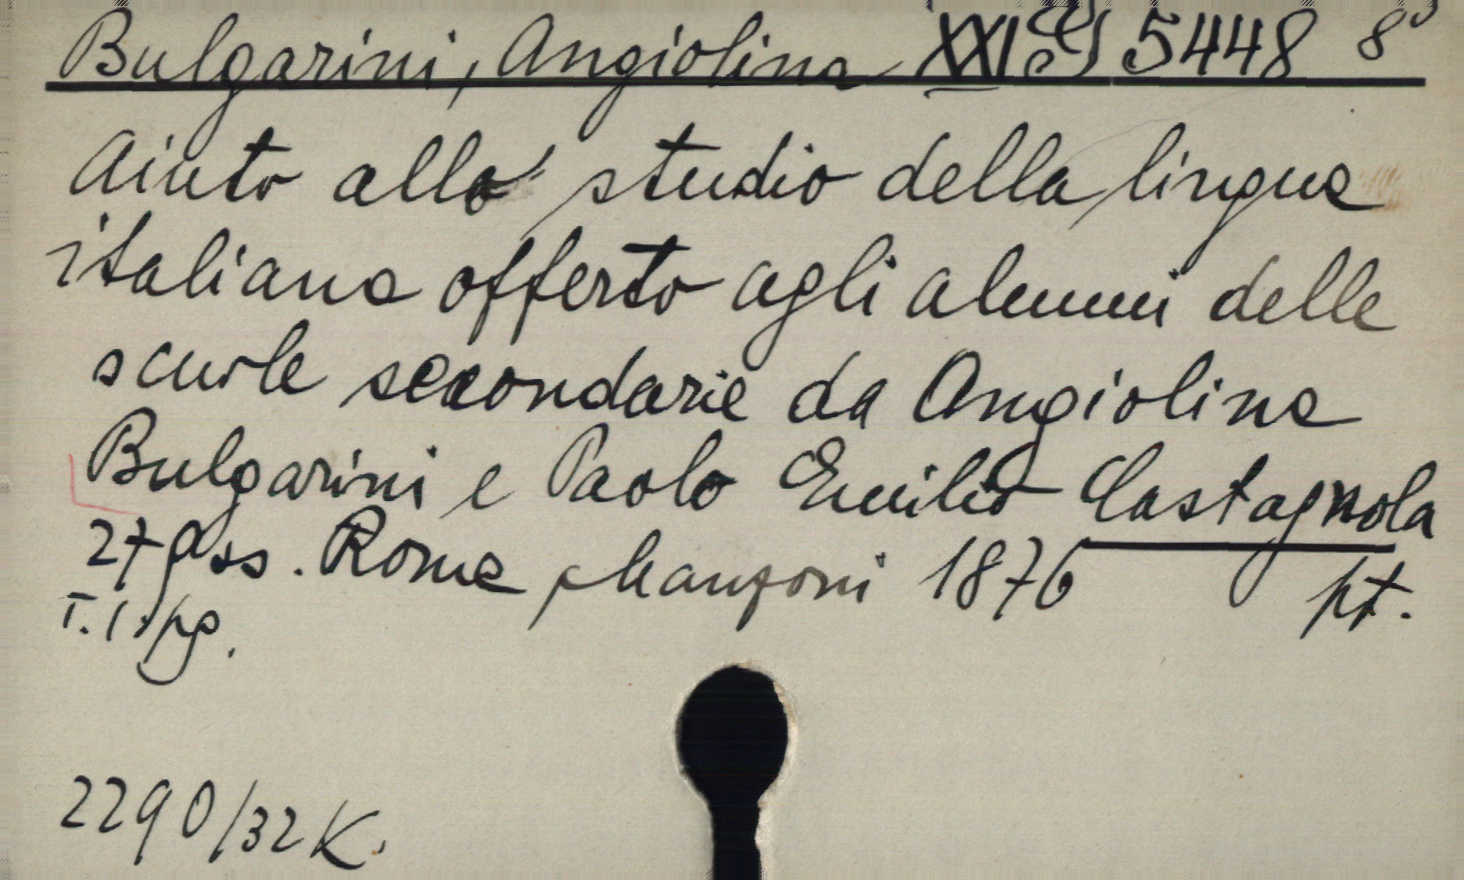 Bulgarini, Angiolina XXI 5448 8°
Aiuto allo studio della lingua
italiana offerto agli alunni delle
scuole secondarie da Angiolina
Bulgarini e Paolo Emilio Castagnola
27 pss. Roma, Manzoni 1876 pt.
T. I. pp.
2290/32 K.